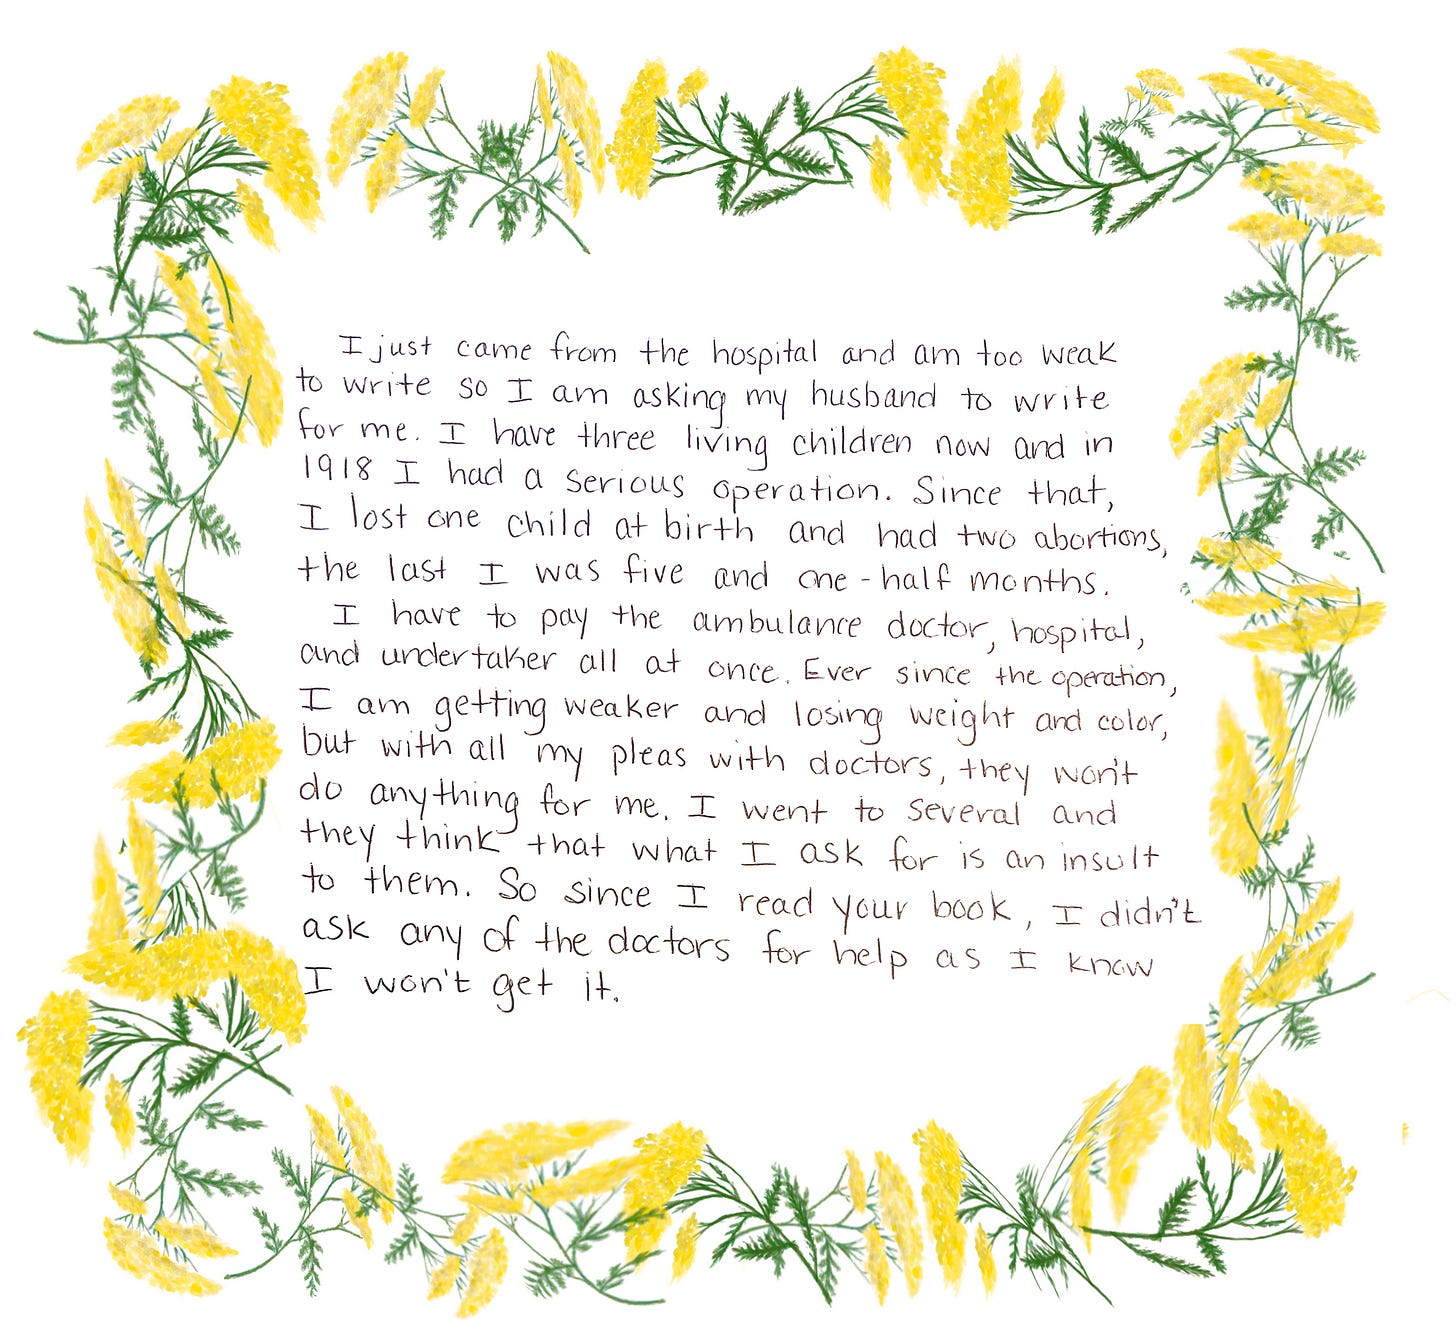 I just came from the hospital and am too weak
to write so I am asking my husband to write
for me. I have three living children now and in
1918 I had a serious operation. Since that,
I lost one child at birth and had two abortions,
the last I was five and one-half months.
I have to pay the ambulance doctor, hospital,
and undertaker all at once. Ever since the operation,
I am getting weaker and losing weight and color,
but with all my pleas with doctors, they won't
do anything for me. I went to several and
they think that what I ask for is an insult
to them. So since I read your book, I didn't
ask any of the doctors for help as I know
I won't get it.